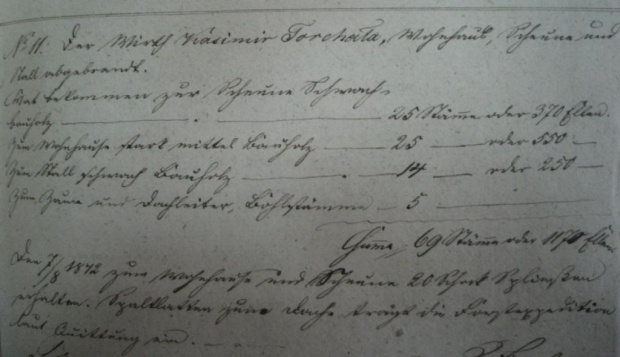 No 11. Der Wirth Kasimir Torchała, Wohnhaus, Scheune und
Stall abgebrandt.
Hat bekommen zur Scheune Schwach
bauholz — 25 Stämme oder 370 Ellen.
Zum Wohnhause stark mittel Bauholz — 25 — oder 550 —
Zum Stall schwach Bauholz — 14 — oder 250 —
Zum Zaune und Dachleiter, Bohlstämme — 5 —
Suma, 69 Stämme oder 1170 Ellen
Den 7/8 1872 zum Wohnhause und Scheune 20 Schock Splinßen
erhalten. Spaltlatten zum Dache trägt die Forstexpedition
laut Quittung ein. —